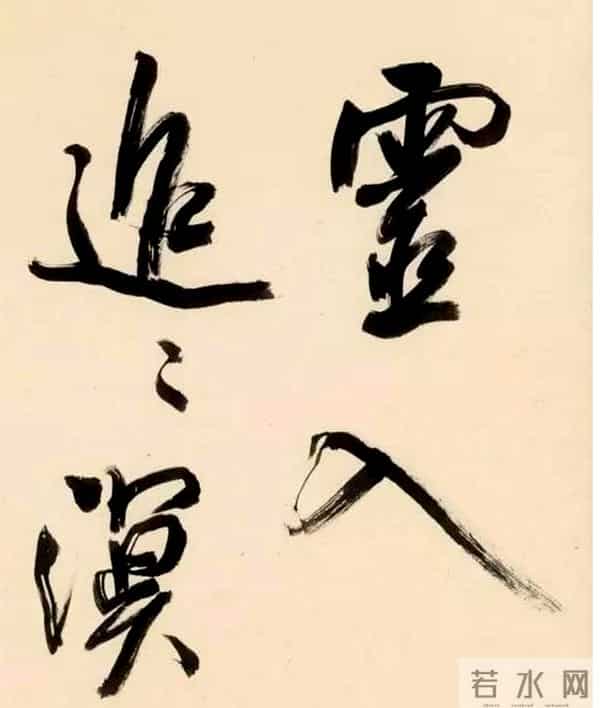 靈入
迢〻溟
若水网